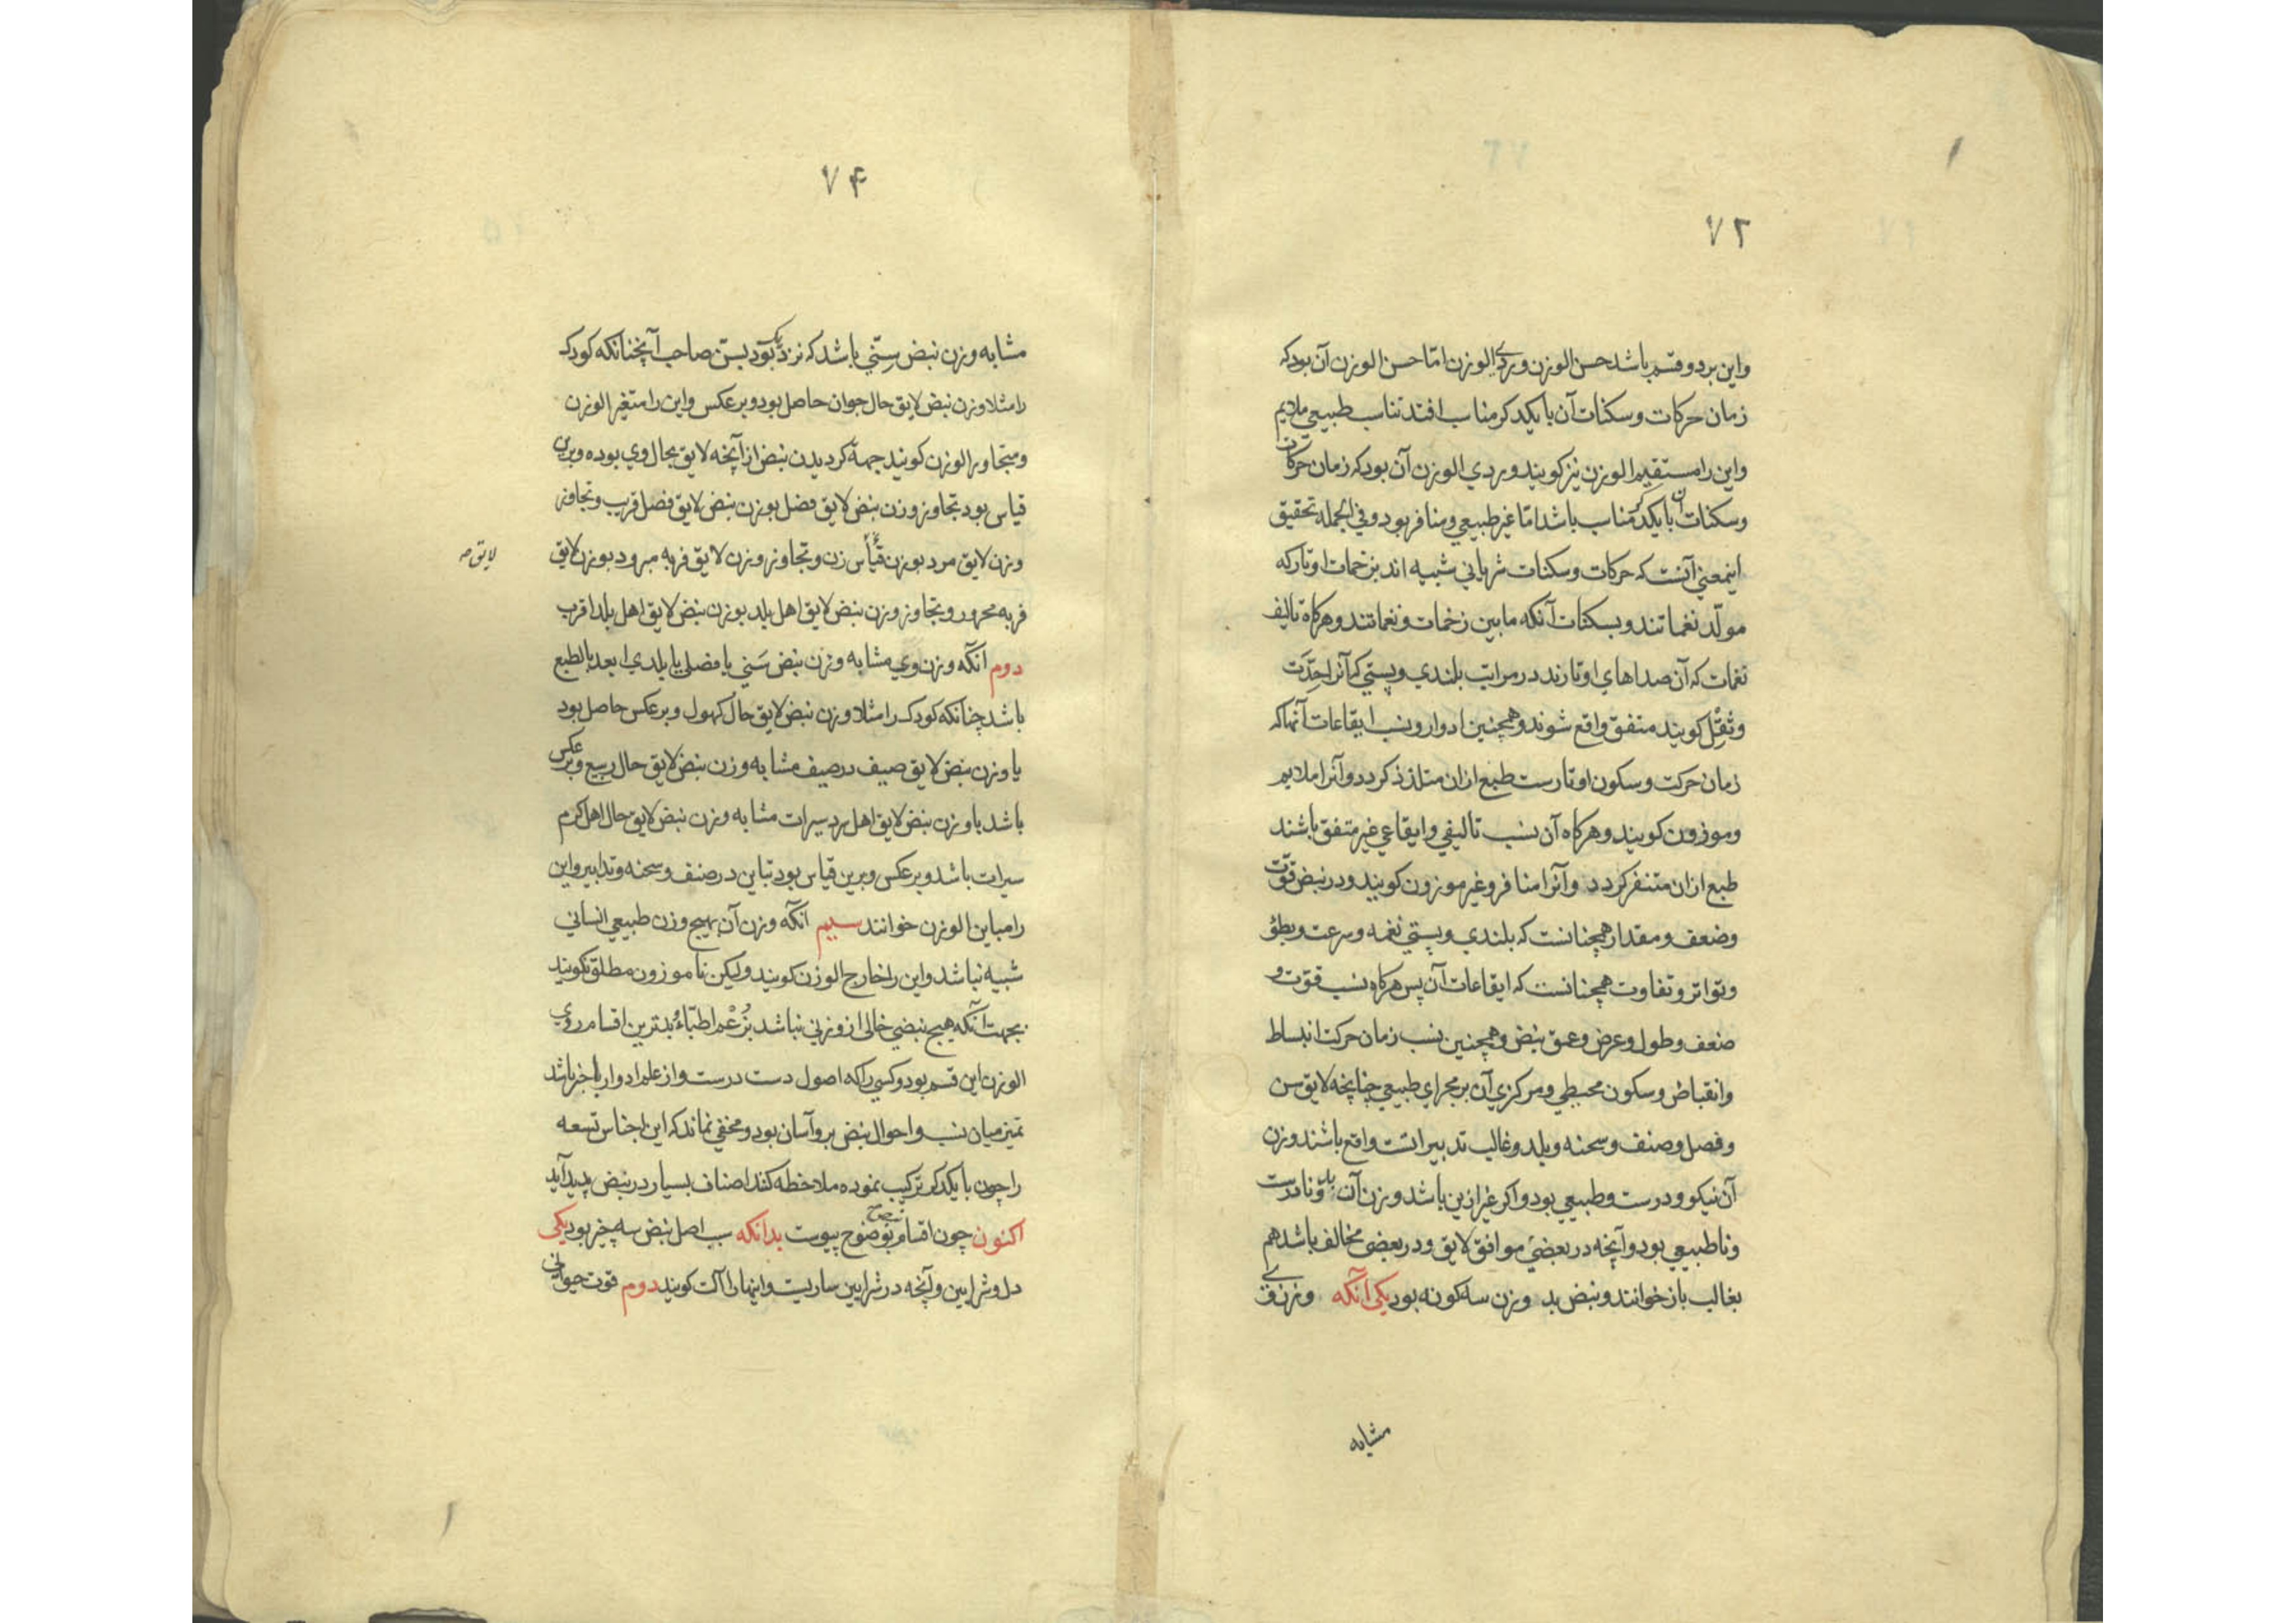 ۷۳
واین بر دو قسم باشد حسن الوزن وردی الوزن امّا حسن الوزن آن بود که
زمان حرکات و سکنات آن با یکدکر مناسب افتد تناسب طبیعی ملایم
واین را مستقیم الوزن نیز کویند و ردی الوزن آن بود که زمان حرکات
وسکنات آن با یکدکر مناسب باشد امّا غیر طبیعی و منافر بود و فی الجمله تحقیق
اینمعنی آنست که حرکات وسکنات شریانی شبیه اند بزخمات اوتار که
مولّد نغماتند و بسکنات آنکه مابین زخمات و نغماتند و هرکاه تالیف
نغمات که آن صداهای اوتارند در مراتب بلندی و پستی که آنرا حِدّت
وثِقْل کویند متفق واقع شوند و همچنین ادوار و نسب ایقاعات آنها که
زمان حرکت و سکون اوتارست طبع ازان متلذذ کردد و آنرا ملایم
وموزون کویند و هرکاه آن نسب تالیفی و ایقاعی غیر متفق باشند
طبع ازان متنفر کردد و آنرا منافر و غیر موزون کویند و در نبض قوّت
وضعف و مقدار همچنانست که بلندی و پستی نغمه و سرعت و بطؤ
وتواتر و تفاوت همچنانست که ایقاعات آن پس هرکاه نسب قوّت و
ضعف وطول وعرض وعمق نبض و همچنین نسب زمان حرکت انبساط
وانقباض وسکون محیطی و مرکزی آن بر مجرای طبیعی چنانچه لایق سن
وفصل وصنف وسحنه وبلد وغالب تدبیراتست واقع باشند وزن
آن نیکو و درست و طبیعی بود و اکر غیر ازین باشد وزن آن بد و نادرست
وناطبیعی بود و آنچه در بعضی موافق لایق و در بعضی مخالف باشد هم
بغالب باز خوانند و نبض بد وزن سه کونه بود یکی آنکه وزن وی
مشابه
۷۴
مشابه وزن نبض سِنّی باشد که نزدیک بود بسنّ صاحب آن چنانکه کودک
را مثلا وزن نبض لایق حال جوان حاصل بود و بر عکس واین را متغیر الوزن
ومتجاوز الوزن کویند جهة کردیدن نبض از آنچه لایق بحال وی بوده و برین
قیاس بود تجاوز وزن نبض لایق فصل بوزن نبض لایق فصل قریب و تجاوز
وزن لایق مرد بوزن قیاس زن و تجاوز وزن لایق فربه مبرود بوزن لایق
لایق صه
فربه محرور و تجاوز وزن نبض لایق اهل بلد بوزن نبض لایق اهل بلد اقرب
دوم آنکه وزن وی مشابه وزن نبض سَنی یا فصلی یا بلدی ابعد بالطبع
باشد چنانکه کودک را مثلا وزن نبض لایق حال کهول و بر عکس حاصل بود
یا وزن نبض لایق صیف در صیف مشابه وزن نبض لایق حال ربیع و بر عکس
باشد یا وزن نبض لایق اهل بردسیرات مشابه وزن نبض لایق حال اهل کرم
سیرات باشد و بر عکس و برین قیاس بود تباین در صنف و سحنه و تدابیر و این
را مباین الوزن خوانند سیم آنکه وزن آن بهیچ وزن طبیعی انسانی
شبیه نباشد و این را خارج الوزن کویند ولیکن ناموزون مطلق نکویند
بجهت آنکه هیچ نبضی خالی از وزنی نباشد بزُعْم اطبّاء و بدترین اقسام ردی
الوزن این قسم بود و کسی را که اصول دست درست و از علم ادوار باخبر باشد
تمیز میان نسب و احوال نبض برو آسان بود و مخفی نماند که این اجناس تسعه
را چون با یکدکر ترکیب نموده ملاحظه کنند اصناف بسیار در نبض پدید آید
اکنون چون اقسام نبض بوضوح پیوست بدانکه سبب اصل نبض سه چیز بود یکی
دل و شرایین و آنچه در شرایین ساریست و اینها را آلت کویند دوم قوت حیوانی